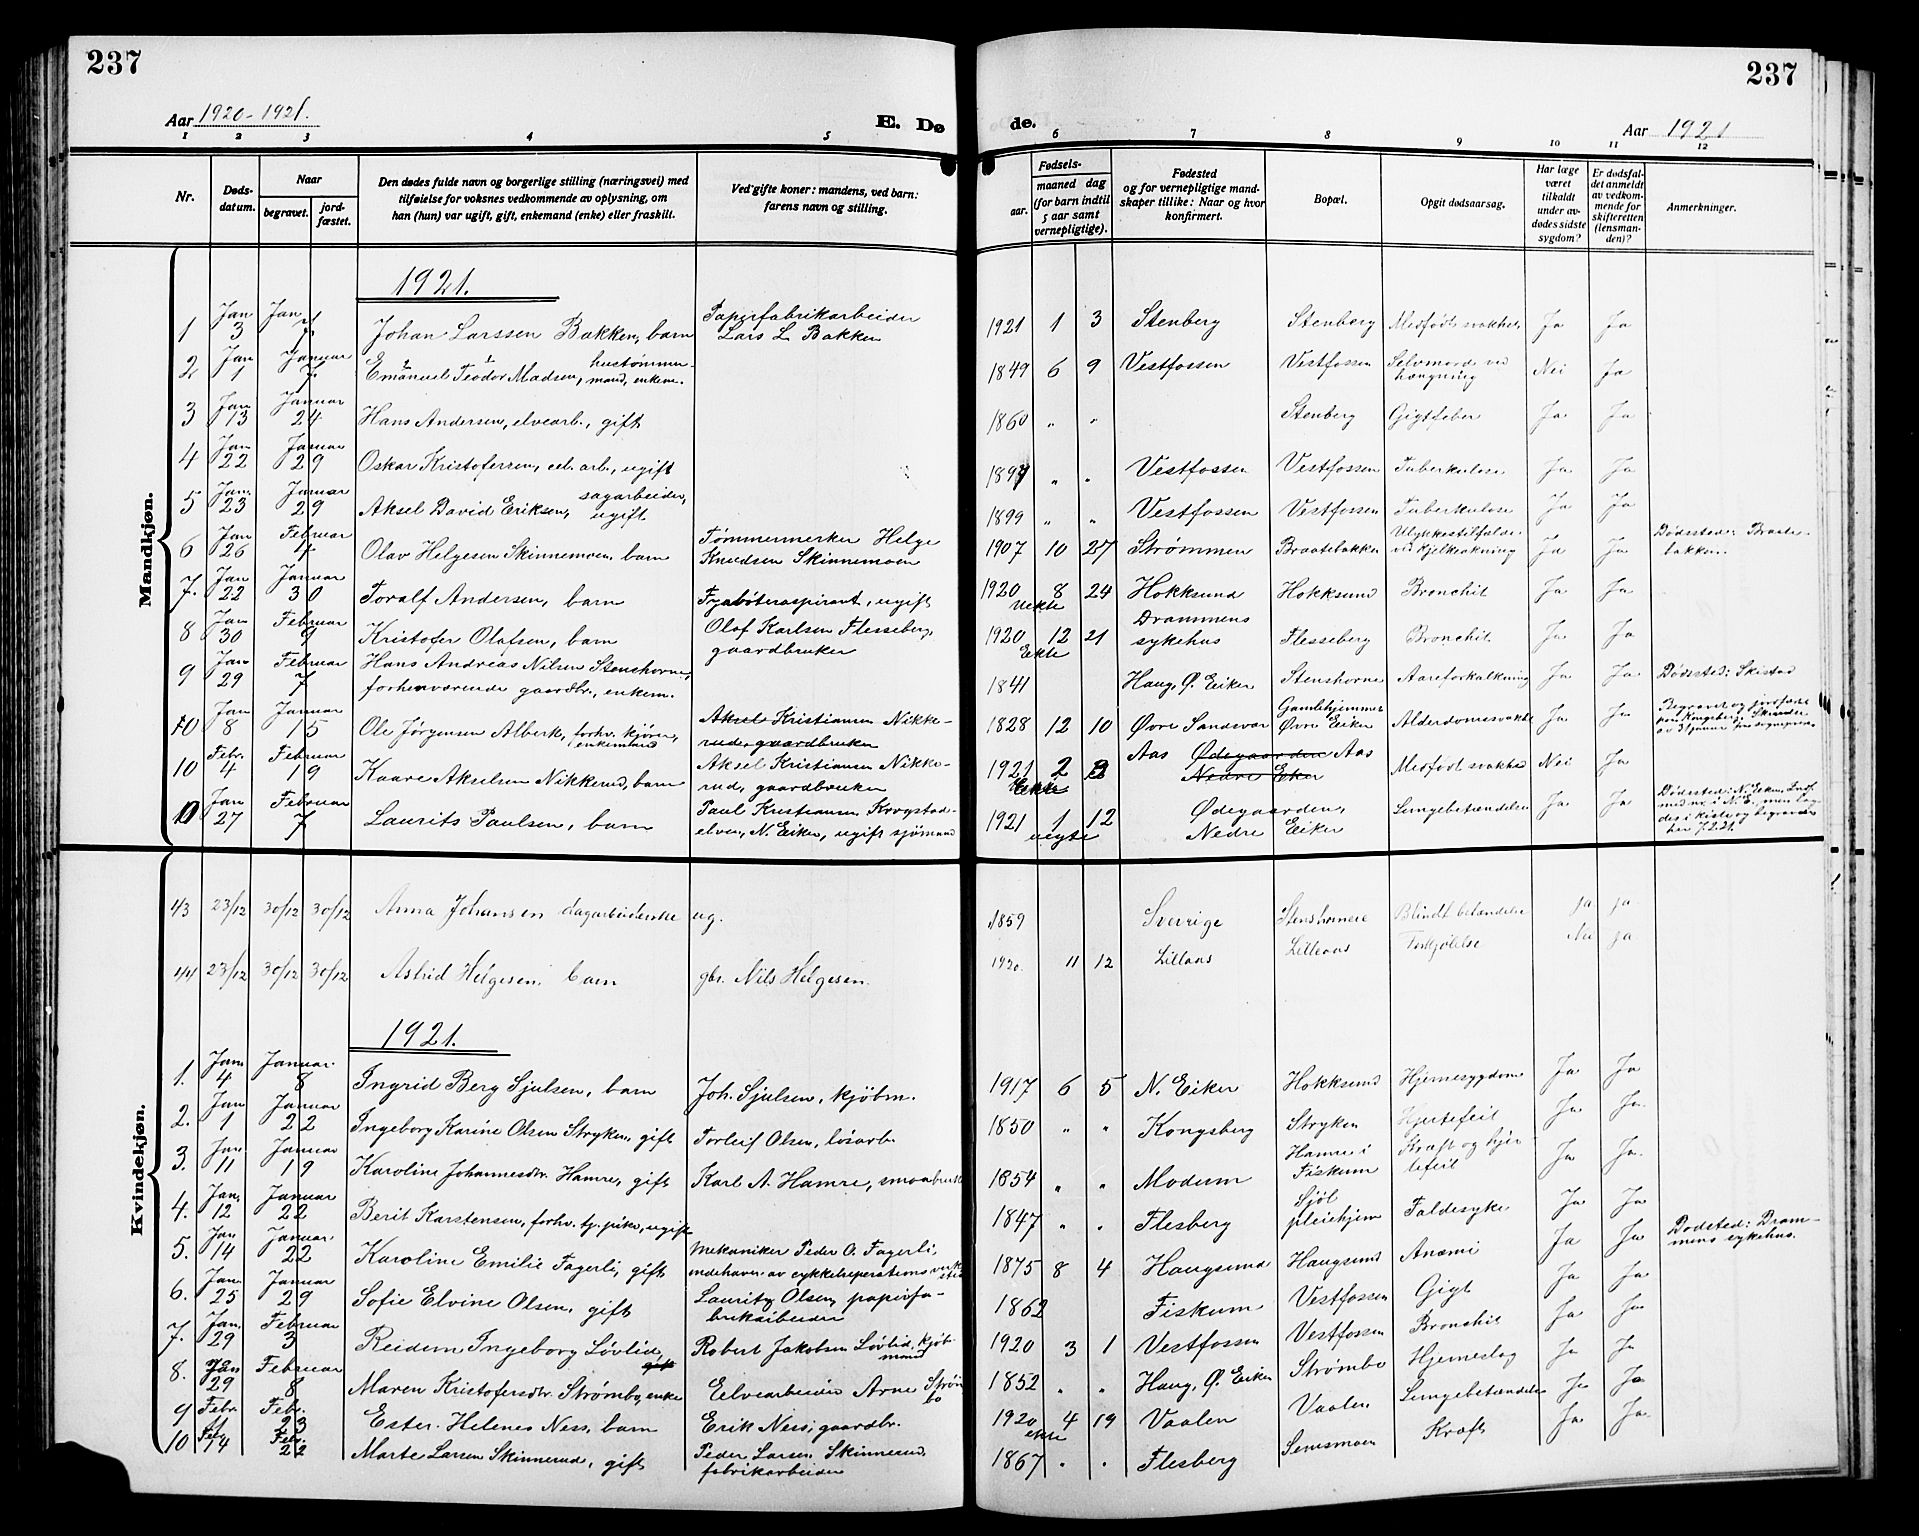 237
237
Aar 1920-1921.
E. Dø
de.
Aar 1921
1 2 3 4 5 6 7 8 9 10 11 12
Nr.
Døds-
datum.
Naar
begravet.
jord-
fæstet.
Den dødes fulde navn og borgerlige stilling (næringsvei) med
tilføielse for voksnes vedkommende av oplysning, om
han (hun) var ugift, gift, enkemand (enke) eller fraskilt.
Ved gifte koner: mandens, ved barn:
farens navn og stilling.
Fødsels-
aar.
maaned dag
(for barn indtil
5 aar samt
vernepligtige).
Fødested
og for vernepligtige mand-
skaper tillike: Naar og hvor
konfirmert.
Bopæl.
Opgit dødsaarsag.
Har læge
været
tilkaldt
under av-
dødes sidste
sygdom?
Er dødsfal-
det anmeldt
av vedkom-
mende for
skifteretten
(lensman-
den)?
Anmerkninger.
Mandkjøn.
1921.
1 Jan 3 Jan 7 Johan Larssen Bakken, barn Papirfabrikarbeider Lars L Bakken 1921 1 3 Stenberg Stenberg Medfødt svakhet Ja Ja
2 Jan 1 Januar 7 Emanuel Teodor Madsen, hustømmermand, enkem. 1849 6 9 Vestfossen Vestfossen Selvmord ved hængning Nei Ja
3 Jan 13 Januar 24 Hans Andersen, elvearb., gift 1860 " " Stenberg Gigtfeber Ja Ja
4 Jan 22 Januar 29 Oskar Kristoffersen, cel. arb., ugift " " Vestfossen Vestfossen Tuberkulose Ja Ja
5 Jan. 23 Januar 29 Aksel David Eriksen, sagarbeider, ugift 1899 " " Vestfossen Vestfossen Tuberkulose Ja Ja
6 Jan 26 Februar Olav Helgesen Skinnemoen, barn Tømmermerker Helge Knudsen Skinnemoen 1907 10 27 Strømmen Braatebakken Ulykkestilfælde ved kjelkeakning Ja Ja Dødssted: Braatebakken.
7. Jan 22 Januar 30 Toralf Andersen, barn ugift 1920 uekte 8 24 Hokksund Hokksund Bronchit Ja Ja
8 Jan 30 Februar 9 Kristofer Olafsen, barn Olaf Karlsen Flesseberg, gaardbruker 1920 Ekte 12 21 Drammens sykehus Flesseberg Bronchit Ja Ja
9 Jan 29 Februar 7 Hans Andreas Nilsen Stenshorne, forhenværende gaardbr., enkem. 1841 Haug, Ø. Eiker Stenshorne Aareforkalkning Ja Ja Dødssted: Skistad
10 Jan 8 Januar 15 Ole Jørgensen Alberk, forhv. kjører, enkemand Aksel Kristiansen Nikkerud, gaardbruker 1828 12 10 Øvre Sandsvær Gamlehjemmet Øvre Eiker Alderdomssvakhet Ja Ja
10 Febr. 4 Februar 19 Kaare Akselsen Nikkerud, barn Aksel Kristiansen Nikkerud, gaardbruker 1921 Ekte 2 Aas Ødegaarden Nedre Eiker Aas Medfødt svakhed Nei Ja
Jan 27 Februar 7 Laurits Paulsen, barn Paul Kristiansen Krogstadelven, N. Eiker, ugift sjømand 1921 uegte 1 12 Ødegaarden, Nedre Eiker Lungebetændelse Ja Ja
Kvindekjøn.
43 23/12 30/12 30/12 Anna Johansen dagarbeiderske ug. 1859 Sverige Stenshorne Blindt.betændelse ja ja
44 23/12 30/12 30/12 Astrid Helgesen. barn gbr. Nils Helgesen. 1920. 11 12 Lillaas Lilleaas Forkjølelse Nei ja
1921.
1. Jan. 4 Januar. 8 Ingrid Berg Sjulsen, barn Joh. Sjulsen, kjøbm. 1917 6 5 N. Eiker Hokksund Hjernesygdom Ja Ja
2. Jan 1 Januar 22 Ingeborg Karine Olsen Stryken, gift Torleif Olsen, løsarb. 1850 " " Kongsberg Stryken Hjertefeil Ja Ja.
3. Jan 11 Januar 19 Karoline Johannesdtr. Hamre, gift Karl A. Hamre, smaabruker 1854 " " Modum Hamre i Fiskum Kræft og hjertefeil Ja Ja.
4. Jan. 12 Januar 22 Berit Karstensen, forhv. tj. pike, ugift 1847 " " Flesberg Sjøl pleiehjem Faldesyke Ja Ja
5. Jan 14 Januar 22 Karoline Emilie Fagerli, gift Mekaniker Peder O. Fagerli, indehaver av cykkelreperationsverksted 1875 8 4 Haugsund Haugsund Anæmi Ja Ja Dødsted: Drammens sykehus.
6. Jan. 25 Januar 29 Sofie Elvine Olsen, gift Lauritz Olsen, papirfabrikarbeider 1862 Fiskum Vestfossen Gigt Ja Ja
7. Jan. 29 Februar 3 Reidun Ingeborg Løvlid, Robert Jakobsen Løvlid, kjøbmand 1920 3 1 Vestfossen Vestfossen Bronchit Ja Ja
8. Jan 29 Februar 8 Maren Kristofersdtr. Strømbo, enke Elvearbeider Arne Strømbo 1852 " " Haug, Ø. Eiker Strømbo Hjerneslag Ja Ja
9 Febr. Febr. 23 Ester Helenes Ness, barn Erik Ness, gaardbr. 1920 ekte 4 19 Vaalen Vaalen Lungebetændelse Ja Ja
10 Feb 14 Febr. 22 Marte Larsen Skinnerud, gift Peder Larsen Skinnerud fabrikarbeider 1867 " " Flesberg Semsmoen Kræft Ja Ja.